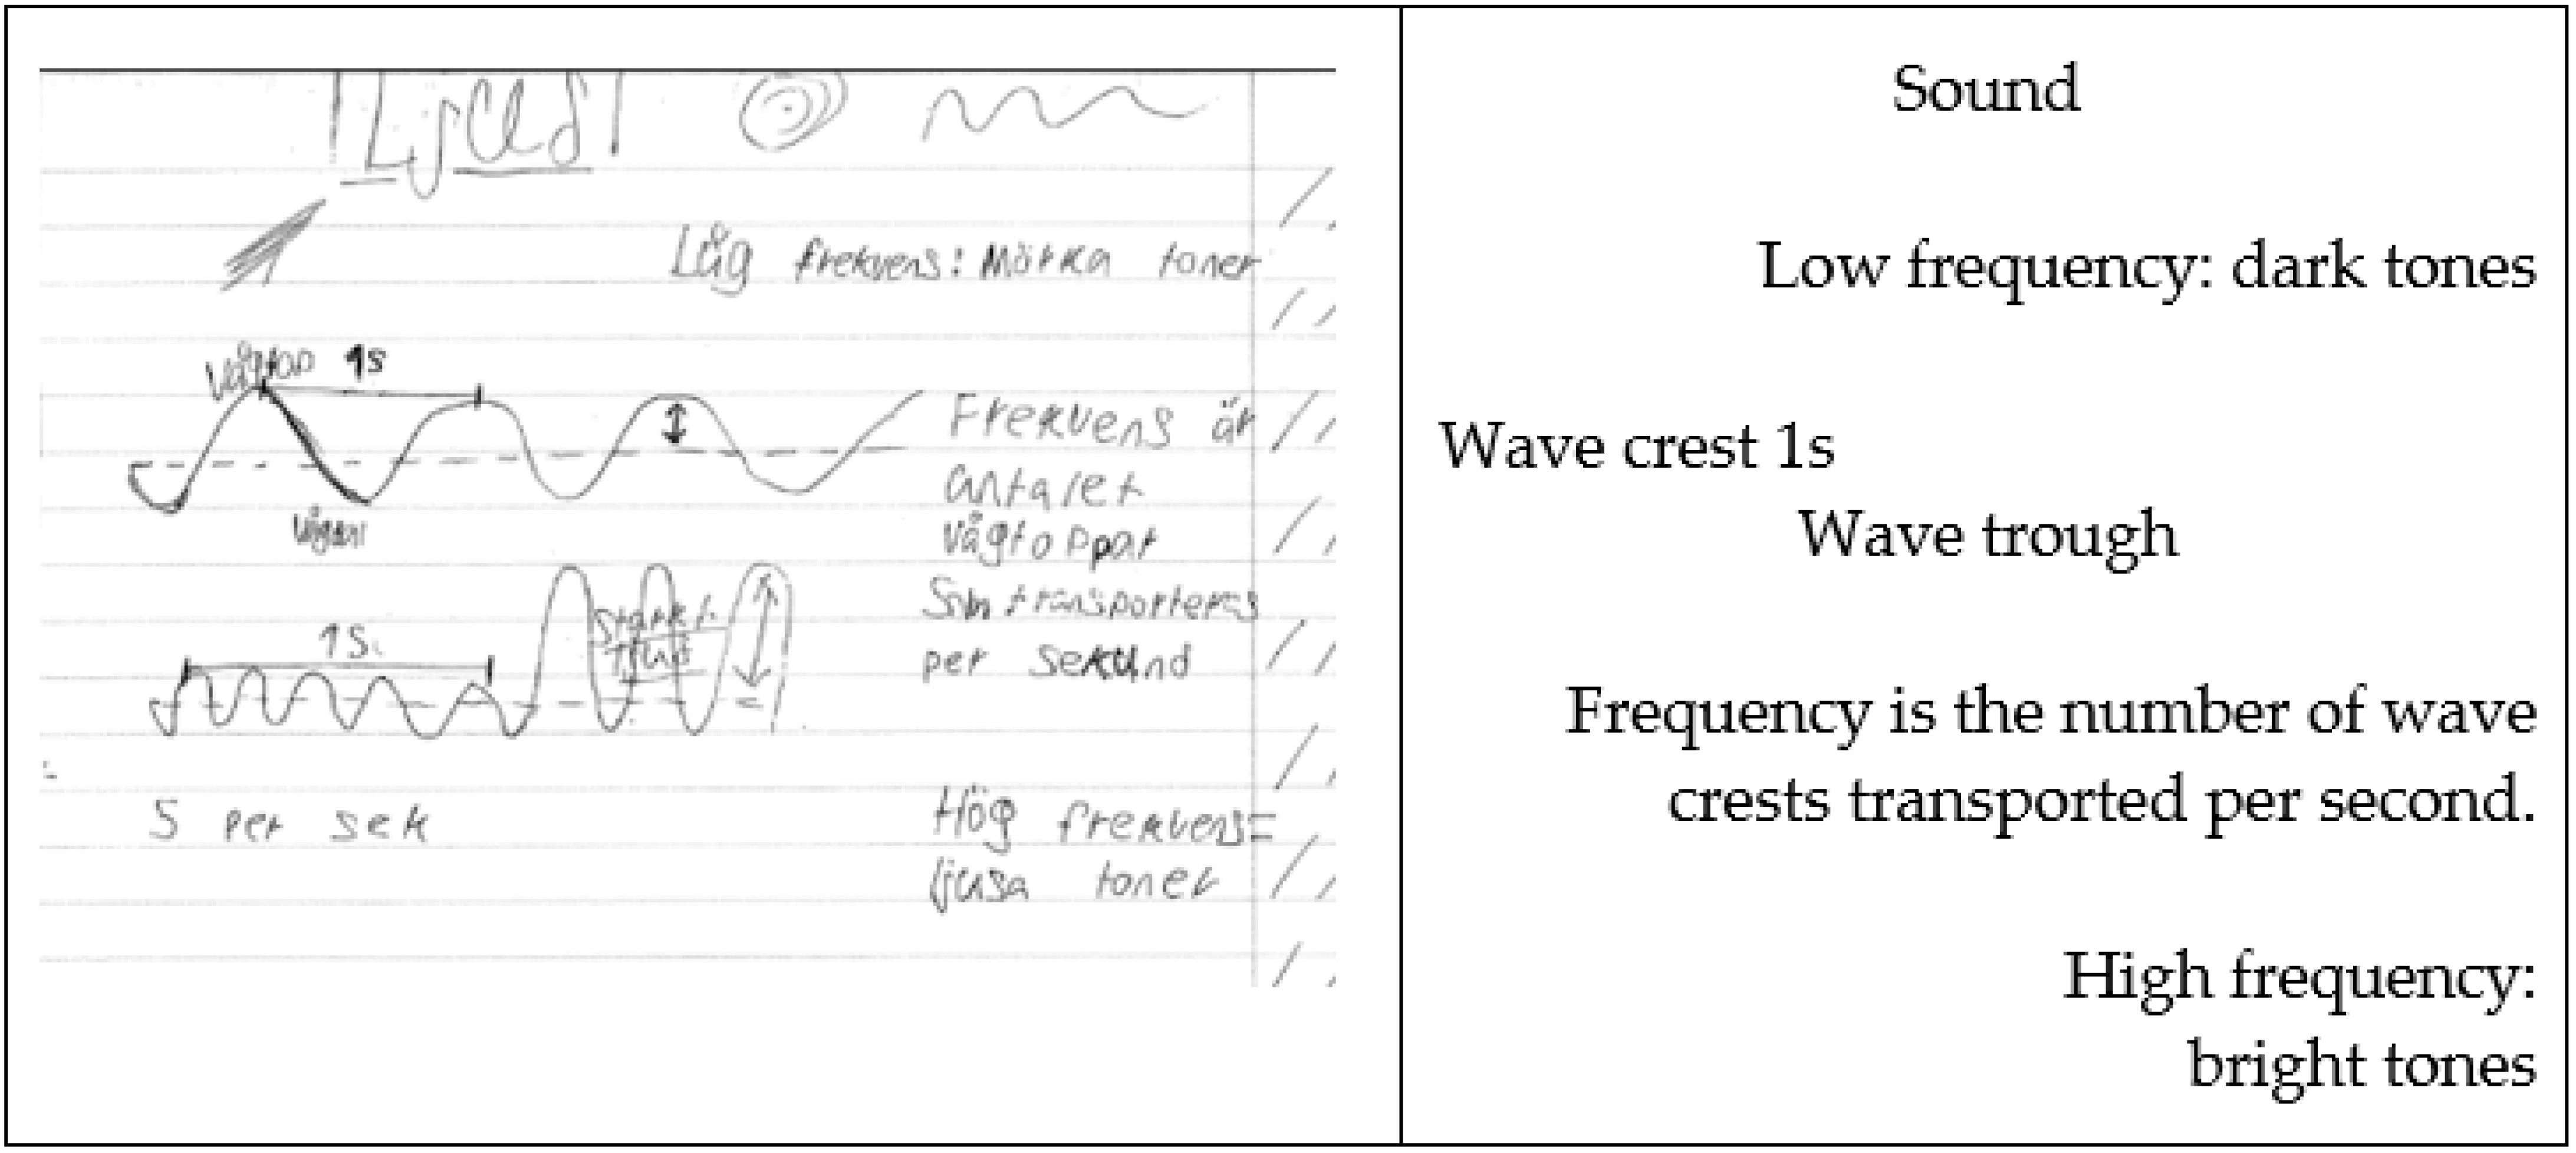 Ljud
Låg frekvens: Mörka toner
Vågtopp 1s
Frekvens är
antalet
Vågtoppar
Vågdal
som transporteras
Starkt
ljud
1s.
per sekund
5 per sek
Hög frekvens=
ljusa toner
Sound
Low frequency: dark tones
Wave crest 1s
Wave trough
Frequency is the number of wave
crests transported per second.
High frequency:
bright tones